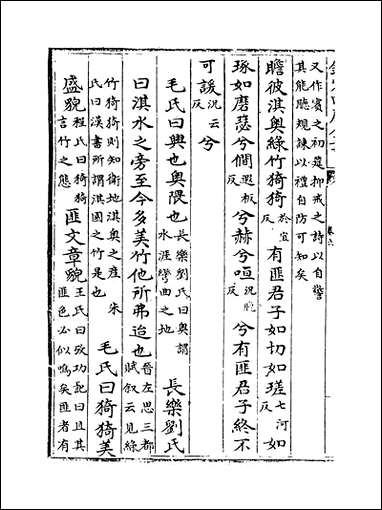 又作賓之初筵抑戒之詩以自警
其能聽規諫以禮自防可知矣
瞻彼淇奧綠竹猗猗於宜反有匪君子如切如瑳七河反如
琢如磨瑟兮僩遐板反兮赫兮咺況晚反兮有匪君子終不
可諼況云反兮
毛氏曰興也奧隈也長樂劉氏曰奧謂水涯彎曲之地長樂劉氏
曰淇水之旁至今多美竹他所弗迨也晉左思三都賦叙云見綠
竹猗猗則知衛地淇奧之產 朱氏曰漢書所謂淇園之竹是也毛氏曰猗猗美
盛貌程氏曰猗猗言竹之態匪文章貌王氏曰攷功記曰且其匪色必似鳴矣匪者有